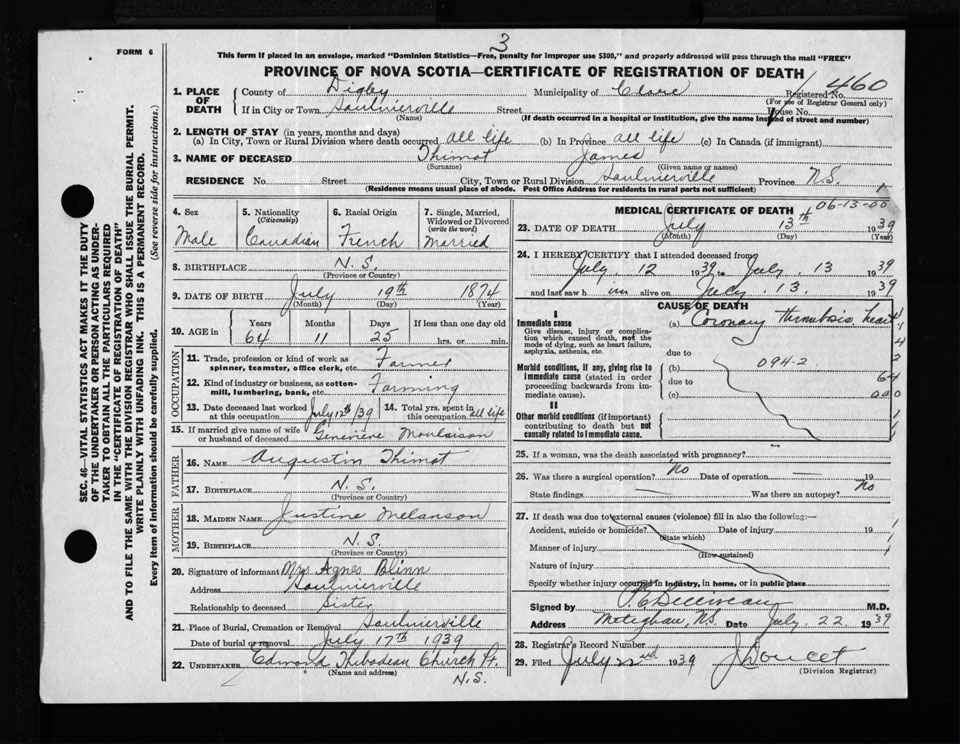 3
FORM 6
This form if placed in an envelope, marked "Dominion Statistics—Free, penalty for improper use $300," and properly addressed will pass through the mail "FREE"
PROVINCE OF NOVA SCOTIA—CERTIFICATE OF REGISTRATION OF DEATH
1. PLACE OF DEATH County of Digby Municipality of Clare Registered No. 460
(For use of Registrar General only)
If in City or Town Saulnierville Street House No.
(Name) (If death occurred in a hospital or institution, give the name instead of street and number)
2. LENGTH OF STAY (in years, months and days)
(a) In City, Town or Rural Division where death occurred all life (b) In Province all life (c) In Canada (if immigrant)
3. NAME OF DECEASED Thimot James
(Surname) (Given name or names)
RESIDENCE No. Street City, Town or Rural Division Saulnierville Province N.S.
(Residence means usual place of abode. Post Office Address for residents in rural parts not sufficient)
4. Sex Male
5. Nationality (Citizenship) Canadian
6. Racial Origin French
7. Single, Married, Widowed or Divorced (write the word) Married
8. BIRTHPLACE N.S.
(Province or Country)
9. DATE OF BIRTH July 19th 1874
(Month) (Day) (Year)
10. AGE in Years Months Days If less than one day old
64 11 25 hrs. or min.
OCCUPATION
11. Trade, profession or kind of work as spinner, teamster, office clerk, etc. Farmer
12. Kind of industry or business, as cotton-mill, lumbering, bank, etc. Farming
13. Date deceased last worked at this occupation July 12th/39 14. Total yrs. spent in this occupation all life
15. If married give name of wife or husband of deceased Genevieve Moulaison
FATHER
16. NAME Augustin Thimot
17. BIRTHPLACE N.S.
(Province or Country)
MOTHER
18. MAIDEN NAME Justine Melanson
19. BIRTHPLACE N.S.
(Province or Country)
20. Signature of informant Mrs Agnes Blinn
Address Saulnierville
Relationship to deceased Sister
21. Place of Burial, Cremation or Removal Saulnierville
Date of burial or removal July 17th 1939
22. UNDERTAKER Edmond Thibodeau Church Pt.
(Name and address) N.S.
MEDICAL CERTIFICATE OF DEATH 06-13-00
23. DATE OF DEATH July 13th 1939
(Month) (Day) (Year)
24. I HEREBY CERTIFY that I attended deceased from
July 12 1939 to July 13 1939
and last saw h im alive on July 13. 1939
CAUSE OF DEATH
I
Immediate cause
Give disease, injury or complication which caused death, not the mode of dying, such as heart failure, asphyxia, asthenia, etc.
(a) Coronary thrombosis, heart
due to
Morbid conditions, if any, giving rise to immediate cause (stated in order proceeding backwards from immediate cause).
(b) 094-2
due to
(c)
64
000
II
Other morbid conditions (if important) contributing to death but not causally related to immediate cause.
25. If a woman, was the death associated with pregnancy?
26. Was there a surgical operation? No Date of operation 19
State findings Was there an autopsy? No
27. If death was due to external causes (violence) fill in also the following:—
Accident, suicide or homicide? Date of injury 19
(State which)
Manner of injury
(How sustained)
Nature of injury
Specify whether injury occurred in industry, in home, or in public place
Signed by M.D.
Address Meteghan, N.S. Date July 22 1939
28. Registrar's Record Number
29. Filed July 22nd 1939 J Doucet
(Division Registrar)
SEC. 46—VITAL STATISTICS ACT MAKES IT THE DUTY
OF THE UNDERTAKER OR PERSON ACTING AS UNDER-
TAKER TO OBTAIN ALL THE PARTICULARS REQUIRED
IN THE "CERTIFICATE OF REGISTRATION OF DEATH"
AND TO FILE THE SAME WITH THE DIVISION REGISTRAR WHO SHALL ISSUE THE BURIAL PERMIT.
WRITE PLAINLY WITH UNFADING INK. THIS IS A PERMANENT RECORD.
Every item of information should be carefully supplied. (See reverse side for instructions.)